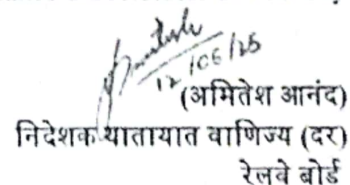 12/06/25
(अमितेश आनंद)
निदेशक यातायात वाणिज्य (दर)
रेलवे बोर्ड